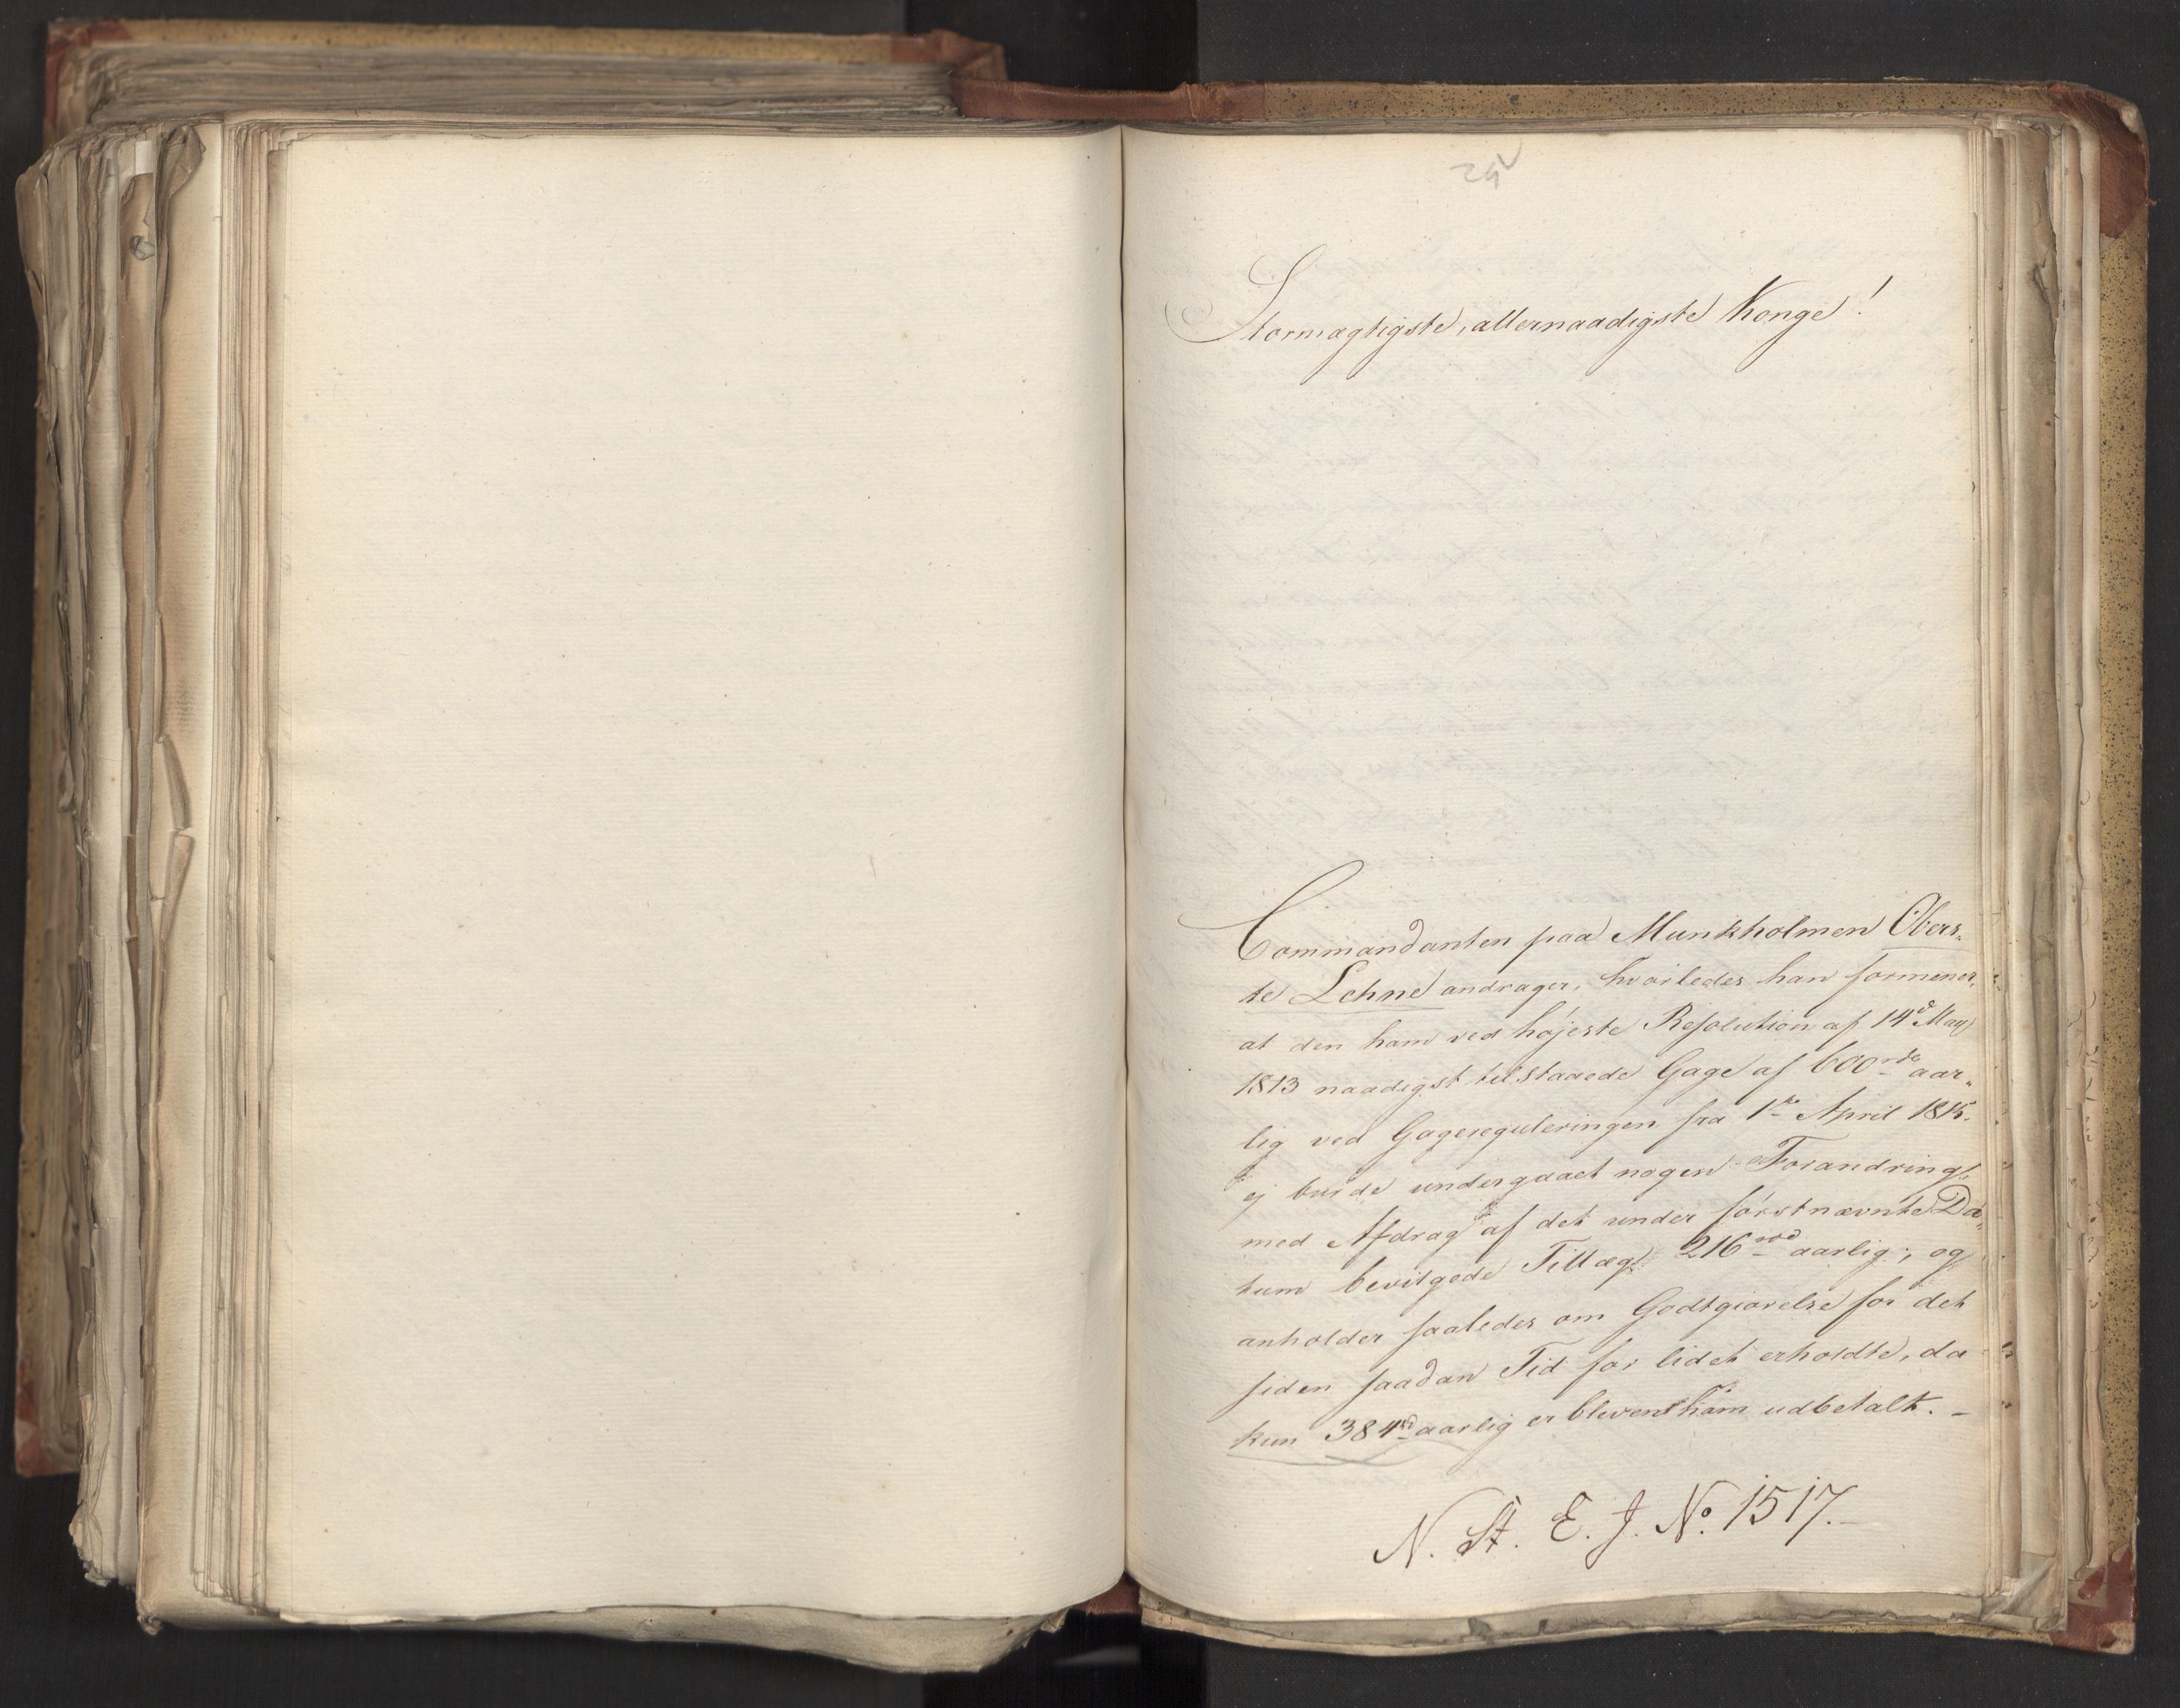 252
Stormægtigste, allernaadigste Konge!
Commandanten paa Munkholmen Obers-
te Lehne andrager, hvorledes han formener,
at den ham ved højeste Resolution af 14d May
1813 naadigst tilstaaede Gage af 600 rdr aar-
lig ved Gagereguleringen fra 1ste April 1815.
ej burde undergaaet nogen Forandring,
med Afdrag af det under förstnævnte Da-
tum bevilgede Tillæg 216 rbd aarlig; og
anholder saaledes om Godtgiörelse for det
siden saadan Tid for lidet erholdte, da
kun 384 rd aarlig er bleven ham udbetalt. -
N. St. E. J. No. 1517.-